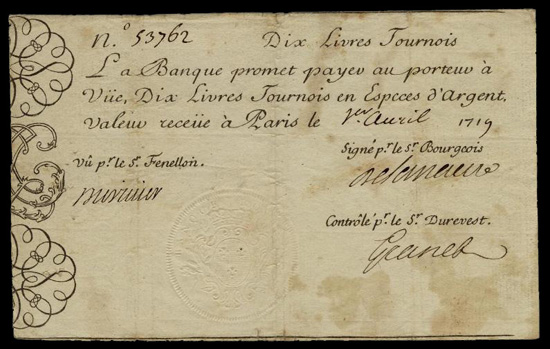 n.º 53762 Dix Livres Tournois
La Banque promet payer au porteur à
Vüe, Dix Livres Tournois en Especes d'Argent,
valeur receüe à Paris le 1.er Avril 1719
Vû p.r le S.r Fenellon.
Signé p.r le S.r Bourgeois
Contrôlé p.r le S.r Durevest.
Granet